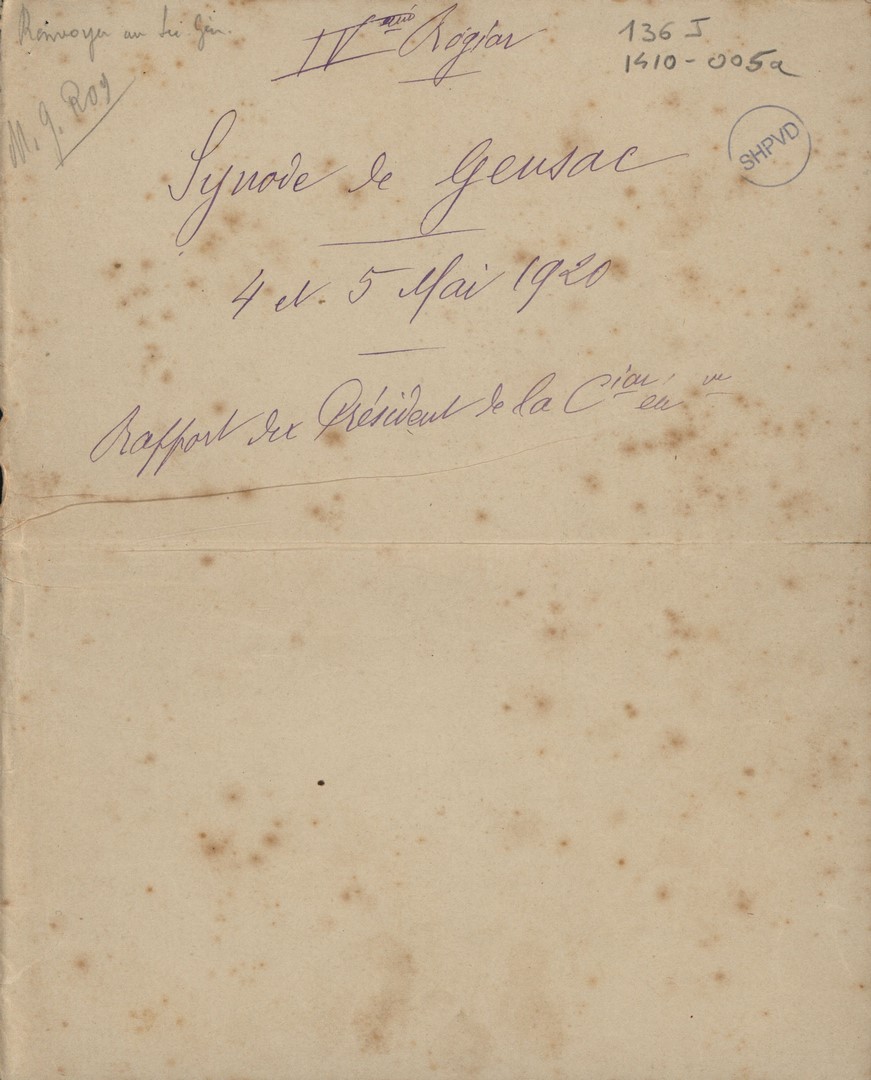 Renvoyer au Sec Gén.
M. J. Roy
136 J
1410-005a
SHPVD
IVème Région
Synode de Gensac
4 et 5 Mai 1920
Rapport du Président de la Cion